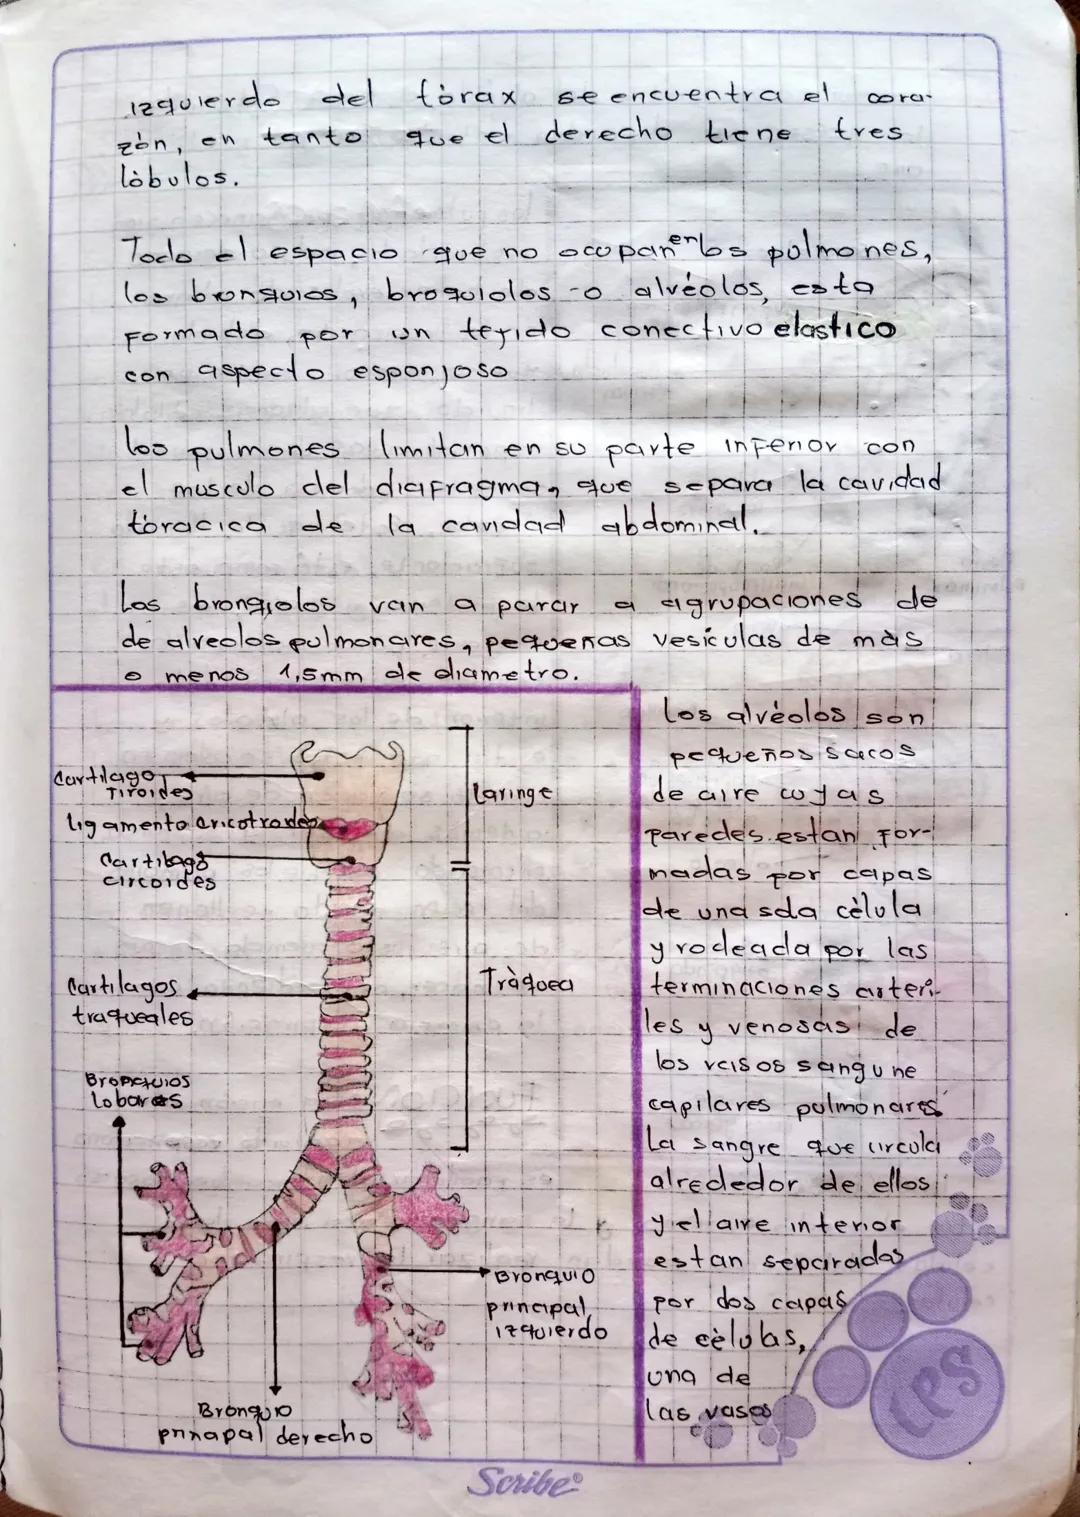 izquierdo del tòrax se encuentra el cora-
zòn, en tanto que el derecho tiene tres
lòbulos.
Todo el espacio que no ocupan en los pulmones,
los bronquios, broquiolos o alvéolos, esta
formado por un tejido conectivo elastico
con aspecto esponjoso
los pulmones limitan en su parte inferior con
el musculo del diafragma, que separa la cavidad
toracica de la cavidad abdominal.
Los bronqiolos van a parar a agrupaciones de
de alveolos pulmonares, pequeñas vesiculas de màs
o menos 1,5mm de diametro.
Cartilago
Tiroides
ligamento cricotrodes
Cartilago
circoides
Cartilagos
traqueales
Bronquios
Lobares
Bronquio
principal derecho
Laringe
Tràquea
Bronquio
principal
izquierdo
Los alvéolos son
pequeños sacos
de aire cuyas
paredes estan for-
madas por capas
de una sola cèlula
y rodeada por las
terminaciones arteri-
les y venosas de
los vasos sangune
capilares pulmonares
La sangre que circula
alrededor de ellos
y el aire interior
estan separados
por dos capas
de cèlulas,
una de
las vasos
LPS
Scribe®